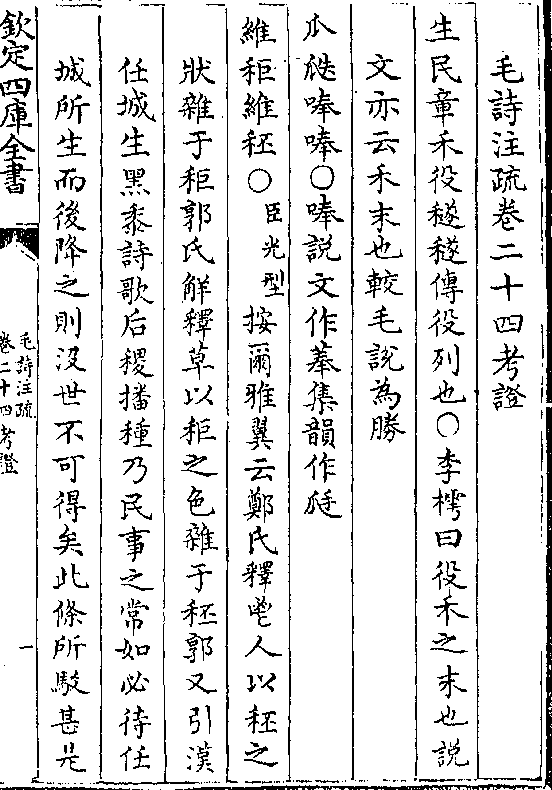 毛詩注疏卷二十四考證
生民章禾役穟穟傳役列也○李樗曰役禾之末也說
文亦云禾末也較毛說為勝
瓜瓞唪唪○唪說文作菶集韻作
維秬維秠○臣光型按爾雅翼云鄭氏釋鬯人以秠之
狀雜于秬郭氏解釋草以秬之色雜于秠郭又引漢
任城生黑黍詩歌后稷播種乃民事之常如必待任
城所生而後降之則沒世不可得矣此條所駮甚是
欽定四庫全書
毛詩注疏
卷二十四考證
一